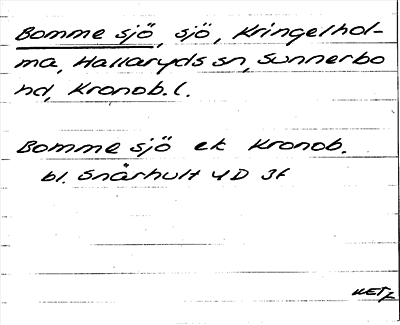 Bomme sjö, sjö, Kringelhol-
ma, Hallaryds sn, Sunnerbo
hd, Kronob. l.
Bomme sjö ek Kronob.
bl. Snårhult 4D 3f